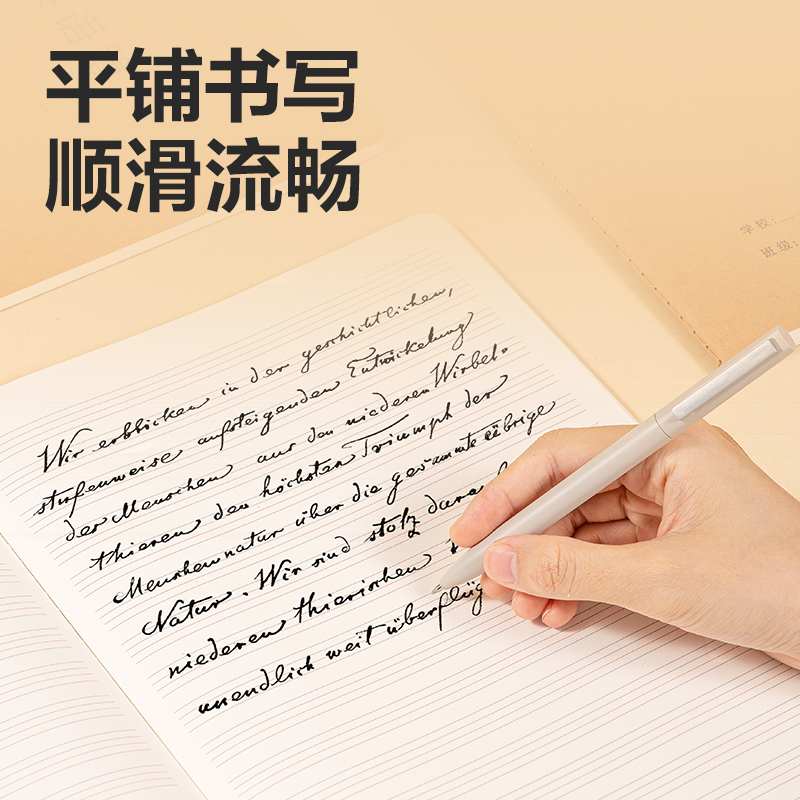 平铺书写
顺滑流畅
学校:
班级:
Wir erblicken in der geschichtlichen,
stufenweise aufsteigenden Entwickelung
der Menschen aus den niederen Wirbel-
thieren den höchsten Triumph der
Menschennatur über die gesammte übrige
Natur. Wir sind stolz
niederen thierischen
unendlich weit überflüg